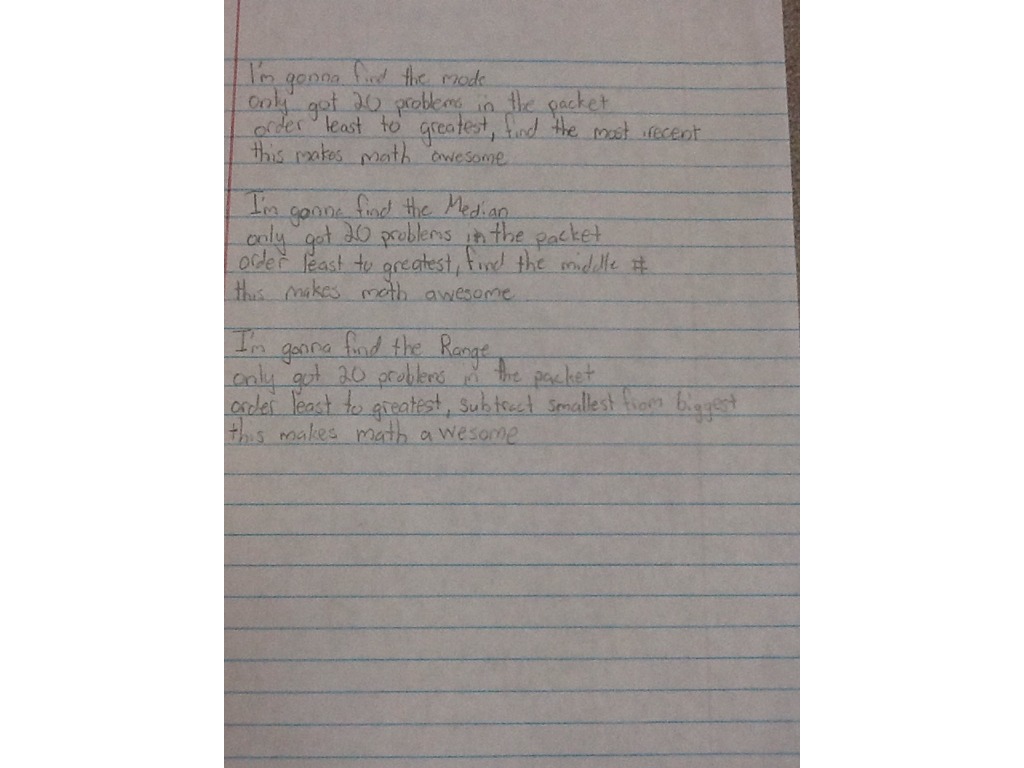 I'm gonna find the mode
only got 20 problems in the packet
order least to greatest, find the most recent
this makes math awesome
I'm gonna find the Median
only got 20 problems in the packet
order least to greatest, find the middle #
this makes math awesome
I'm gonna find the Range
only got 20 problems in the packet
order least to greatest, subtract smallest from biggest
this makes math awesome